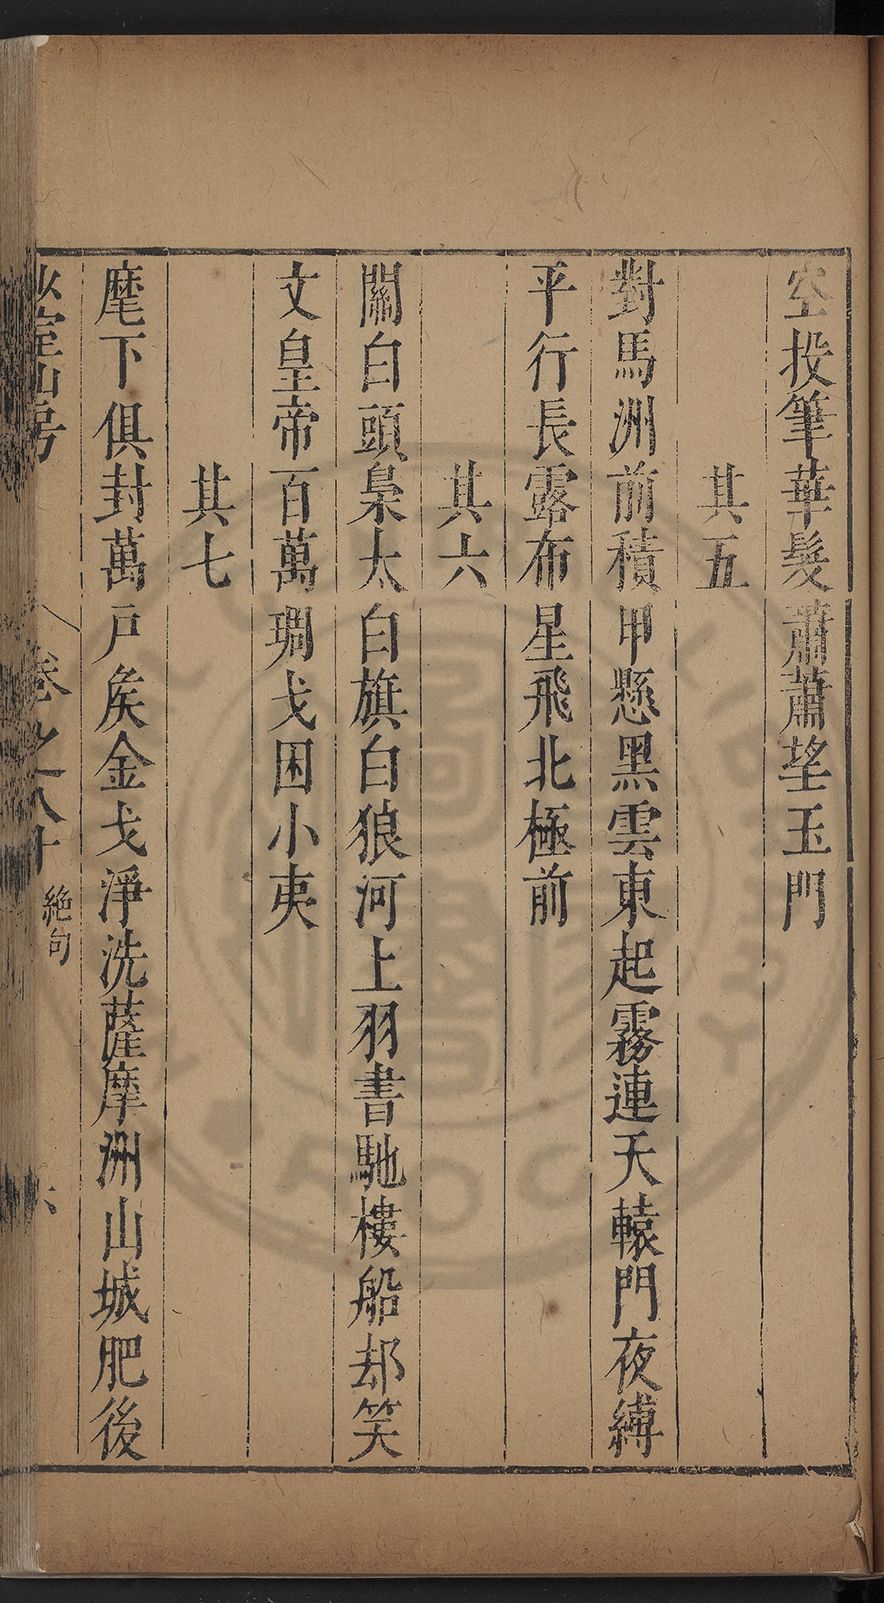 空投筆華髮蕭蕭望玉門
其五
對馬洲前積甲懸黑雲東起霧連天轅門夜縛
平行長露布星飛北極前
其六
關白頭梟太白旗白狼河上羽書馳樓船却笑
文皇帝百萬琱戈困小夷
其七
麾下俱封萬戶矦金戈淨洗薩摩洲山城肥後
絶句